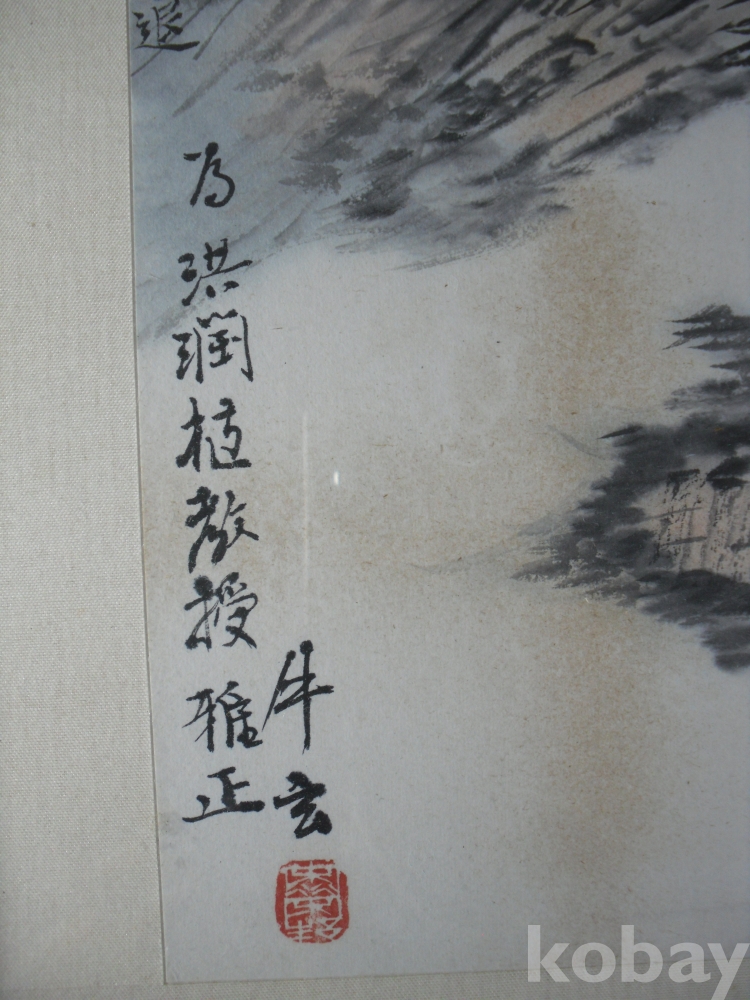 退
為洪潤植教授雅正
牛玄
kobay